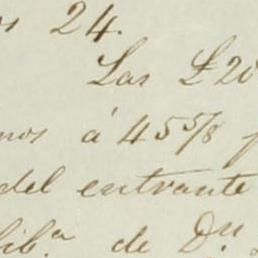 24.
Las £20
mos á 45 5/8 p
del entrante
lib.ª de Dn.